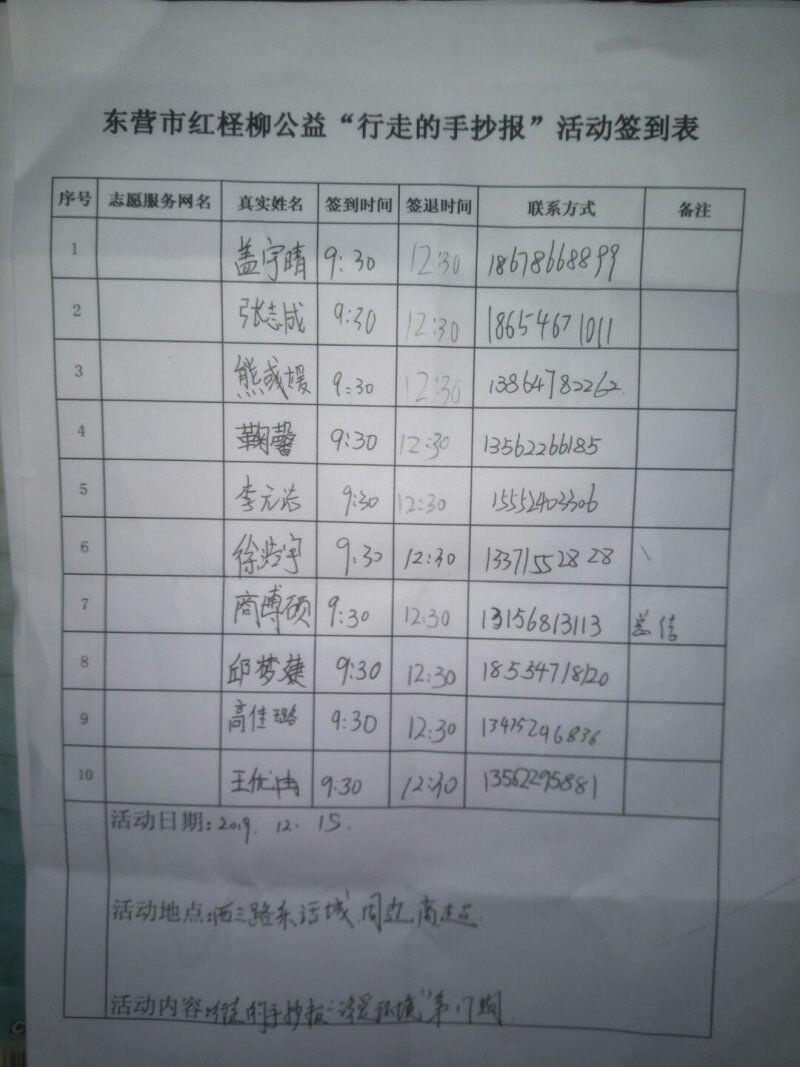 东营市红柽柳公益“行走的手抄报”活动签到表
序号 志愿服务网名 真实姓名 签到时间 签退时间 联系方式 备注
1 盖宇晴 9:30 12:30 18678668899
2 张志成 9:30 12:30 18654671011
3 熊成媛 9:30 12:30 13864782262
4 鞠馨 9:30 12:30 13562266185
5 李元浩 9:30 12:30 15552403306
6 徐浩宇 9:30 12:30 13371552828
7 商博硕 9:30 12:30 13156813113 总结
8 邱梦婕 9:30 12:30 18534718120
9 高佳璐 9:30 12:30 13475296836
10 王优冉 9:30 12:30 13562295881
活动日期:2019.12.15.
活动地点:西三路东 城 周边
活动内容:行走的手抄报“ 爱环境”第17期